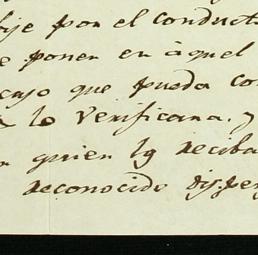 por el conduct
ponen en àquel
que pueda co
lo Verificara. y
quien lo reciba
reconocido